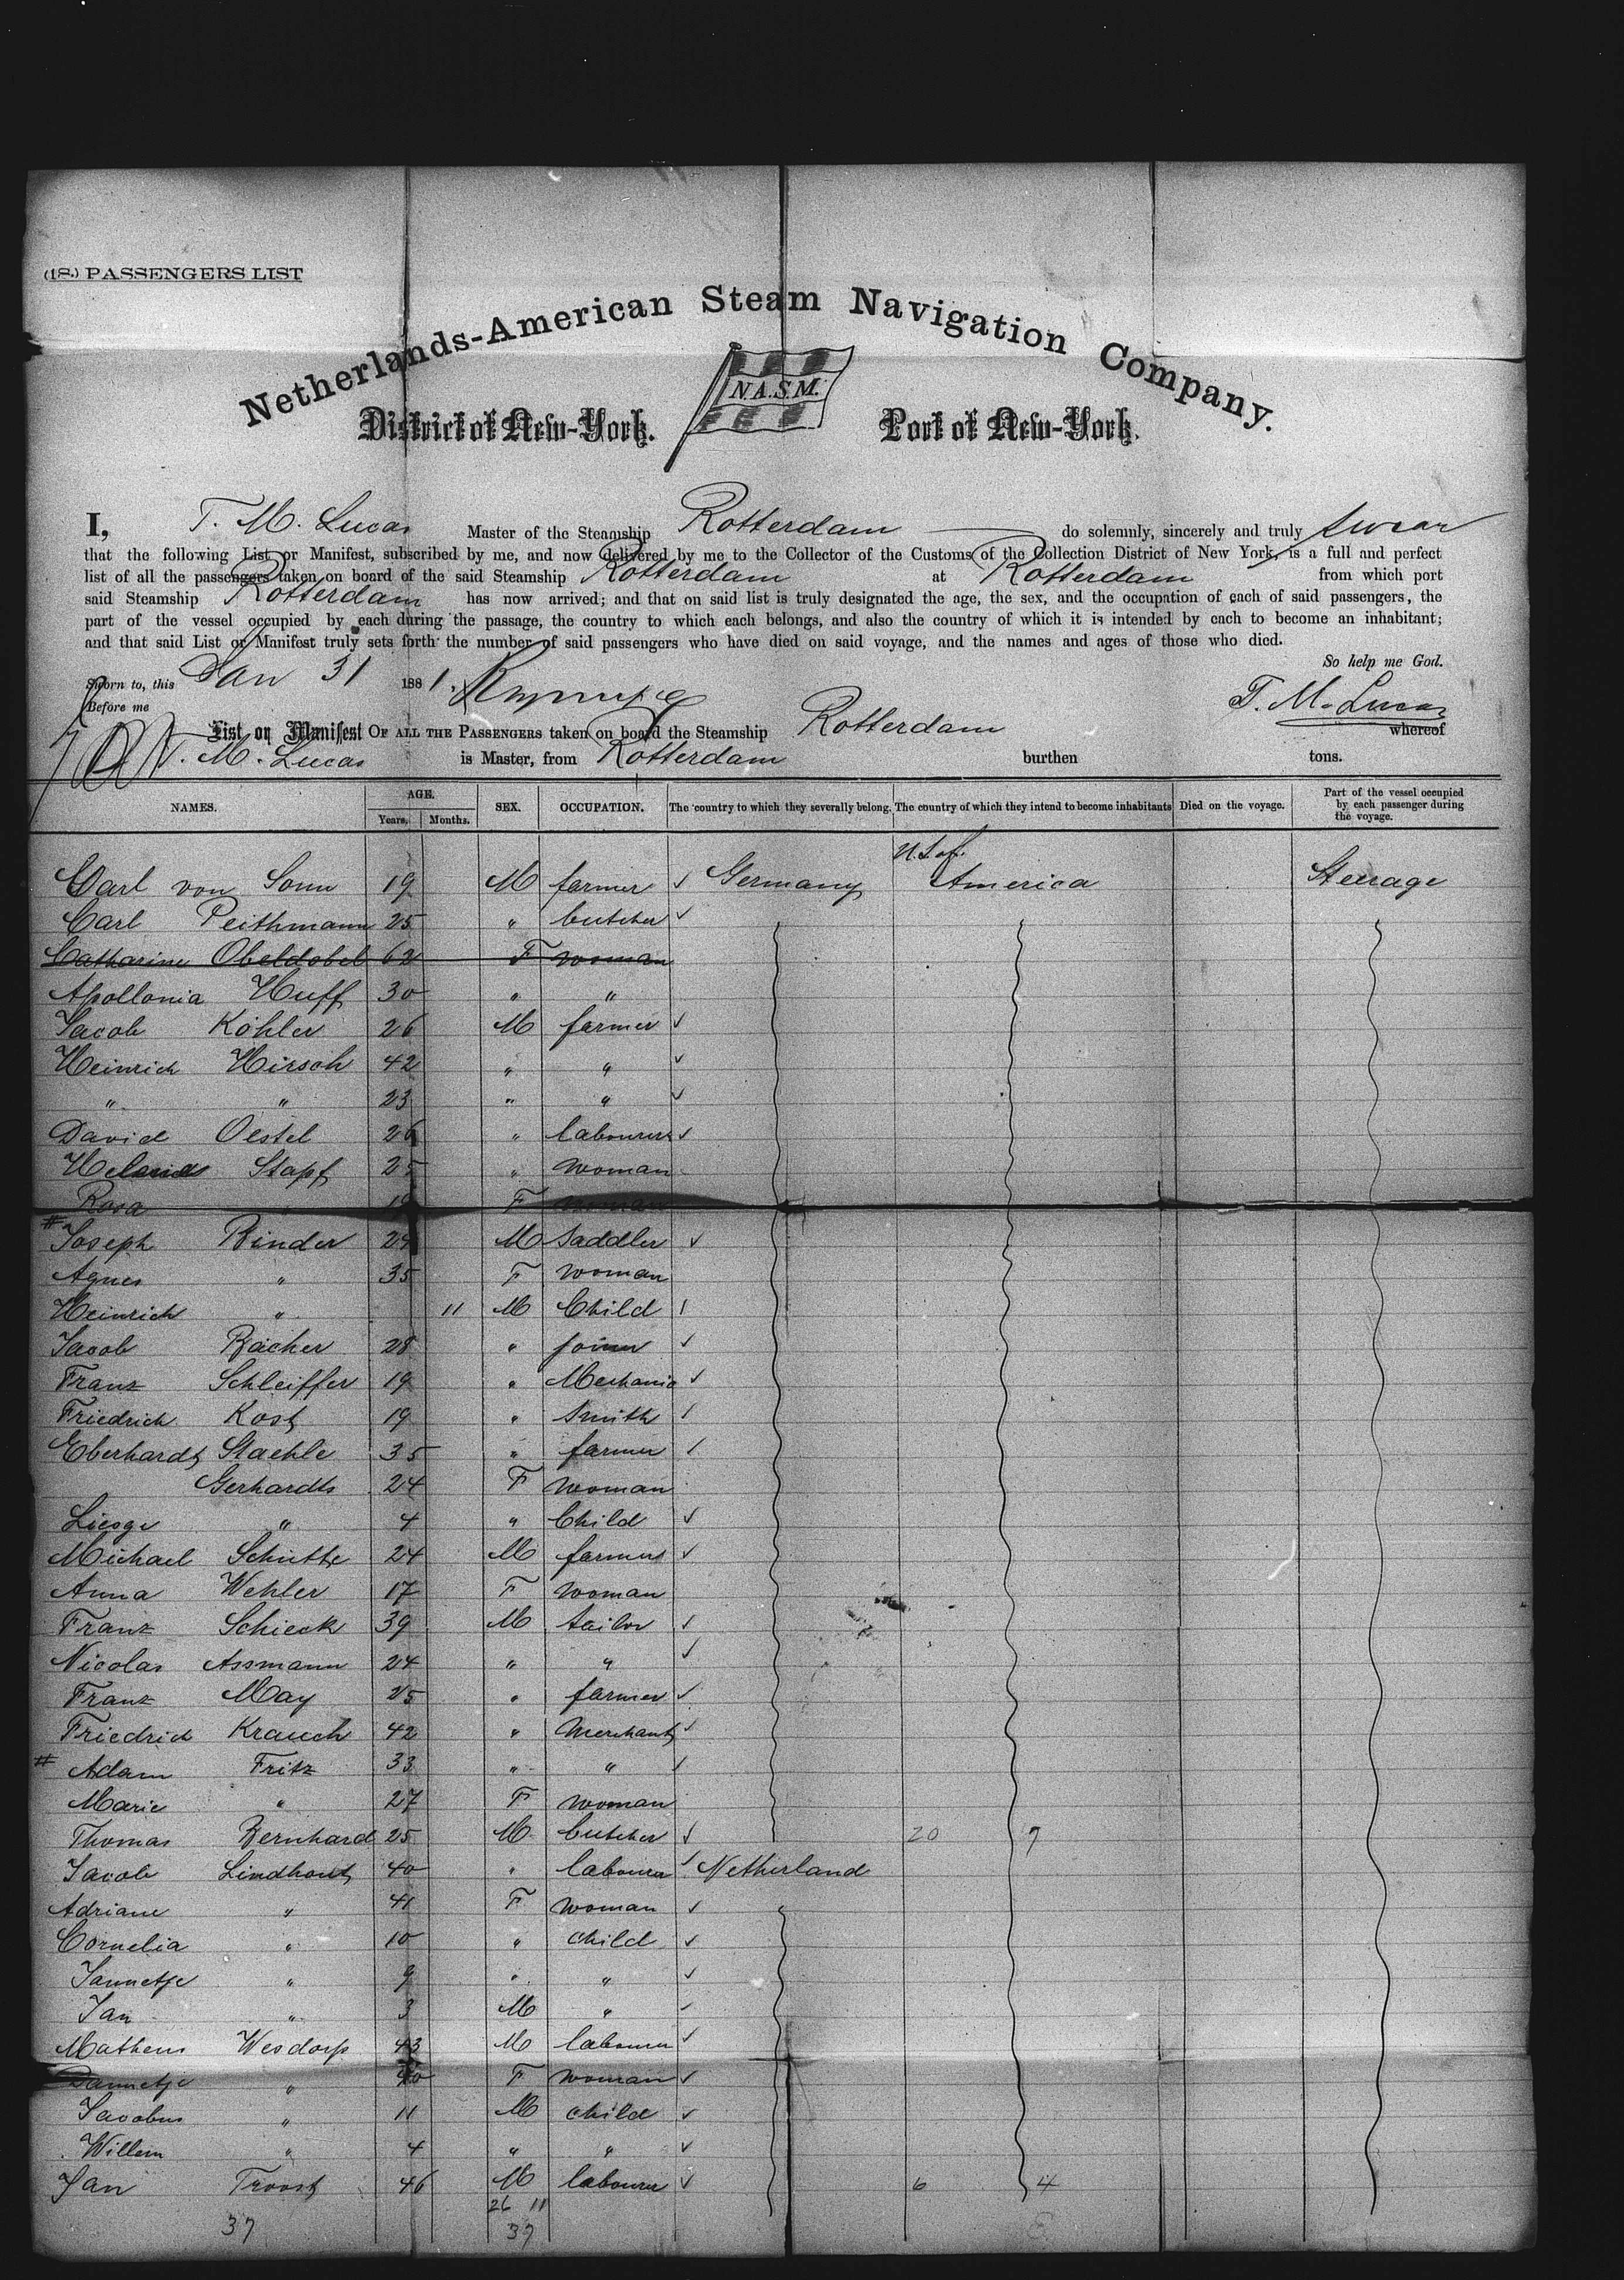 (18.) PASSENGERS LIST
Netherlands-American Steam Navigation Company.
N.A.S.M.
District of New-York. Port of New-York.
I, T. M. Lucas Master of the Steamship Rotterdam do solemnly, sincerely and truly swear
that the following List or Manifest, subscribed by me, and now delivered by me to the Collector of the Customs of the Collection District of New York, is a full and perfect
list of all the passengers taken on board of the said Steamship Rotterdam at Rotterdam from which port
said Steamship Rotterdam has now arrived; and that on said list is truly designated the age, the sex, and the occupation of each of said passengers, the
part of the vessel occupied by each during the passage, the country to which each belongs, and also the country of which it is intended by each to become an inhabitant;
and that said List or Manifest truly sets forth the number of said passengers who have died on said voyage, and the names and ages of those who died.
So help me God.
Sworn to, this Jan 31 1881.
Before me
T. M. Lucas
List or Manifest OF ALL THE PASSENGERS taken on board the Steamship Rotterdam whereof
T. M. Lucas is Master, from Rotterdam burthen tons.
NAMES. AGE. Years. Months. SEX. OCCUPATION. The country to which they severally belong. The country of which they intend to become inhabitants Died on the voyage. Part of the vessel occupied by each passenger during the voyage.
U.S. of
Carl von Sonn 19 M farmer ✓ Germany America Steerage
Carl Peithmann 25 " butcher ✓
Catharine Obeldobel 62 F woman
Apollonia Huff 30 " "
Jacob Köhler 26 M farmer ✓
Heinrich Hirsch 42 " " ✓
" " 23 " " ✓
David Oestel 26 " labourer ✓
Stapf 25 " woman
Rosa " 19 F woman
# Joseph Binder 24 M Saddler ✓
Agnes " 35 F woman
Heinrich " 11 M Child /
Jacob Bächer 28 " joiner ✓
Franz Schleiffer 19 " Mechanic ✓
Friedrich Kost 19 " Smith /
Eberhardt Staehle 35 " farmer /
Gerhardts 24 F woman
Liesge " 4 " Child ✓
Michael Schütte 24 M farmer ✓
Anna Wehler 17 F woman
Franz Schieck 39 M tailor /
Nicolas Assmann 24 " " ✓
Franz May 25 " farmer ✓
Friedrich Krauch 42 " Merchant ✓
# Adam Fritz 33 " " /
Marie " 27 F woman
Thomas Bernhard 25 M butcher ✓ 20 7
Jacob Lindhout 40 " labourer ✓ Netherland
Adriane " 41 F woman ✓
Cornelia " 10 " child ✓
Jannetje " 9 " " ✓
Jan " 3 M " ✓
Matheus Wesdorp 43 M labourer ✓
Dannetje " 40 F woman ✓
Jacobus " 11 M child ✓
Willem " 4 " " ✓
Jan Troost 46 M labourer ✓ 6 4
26 11
37 37 3